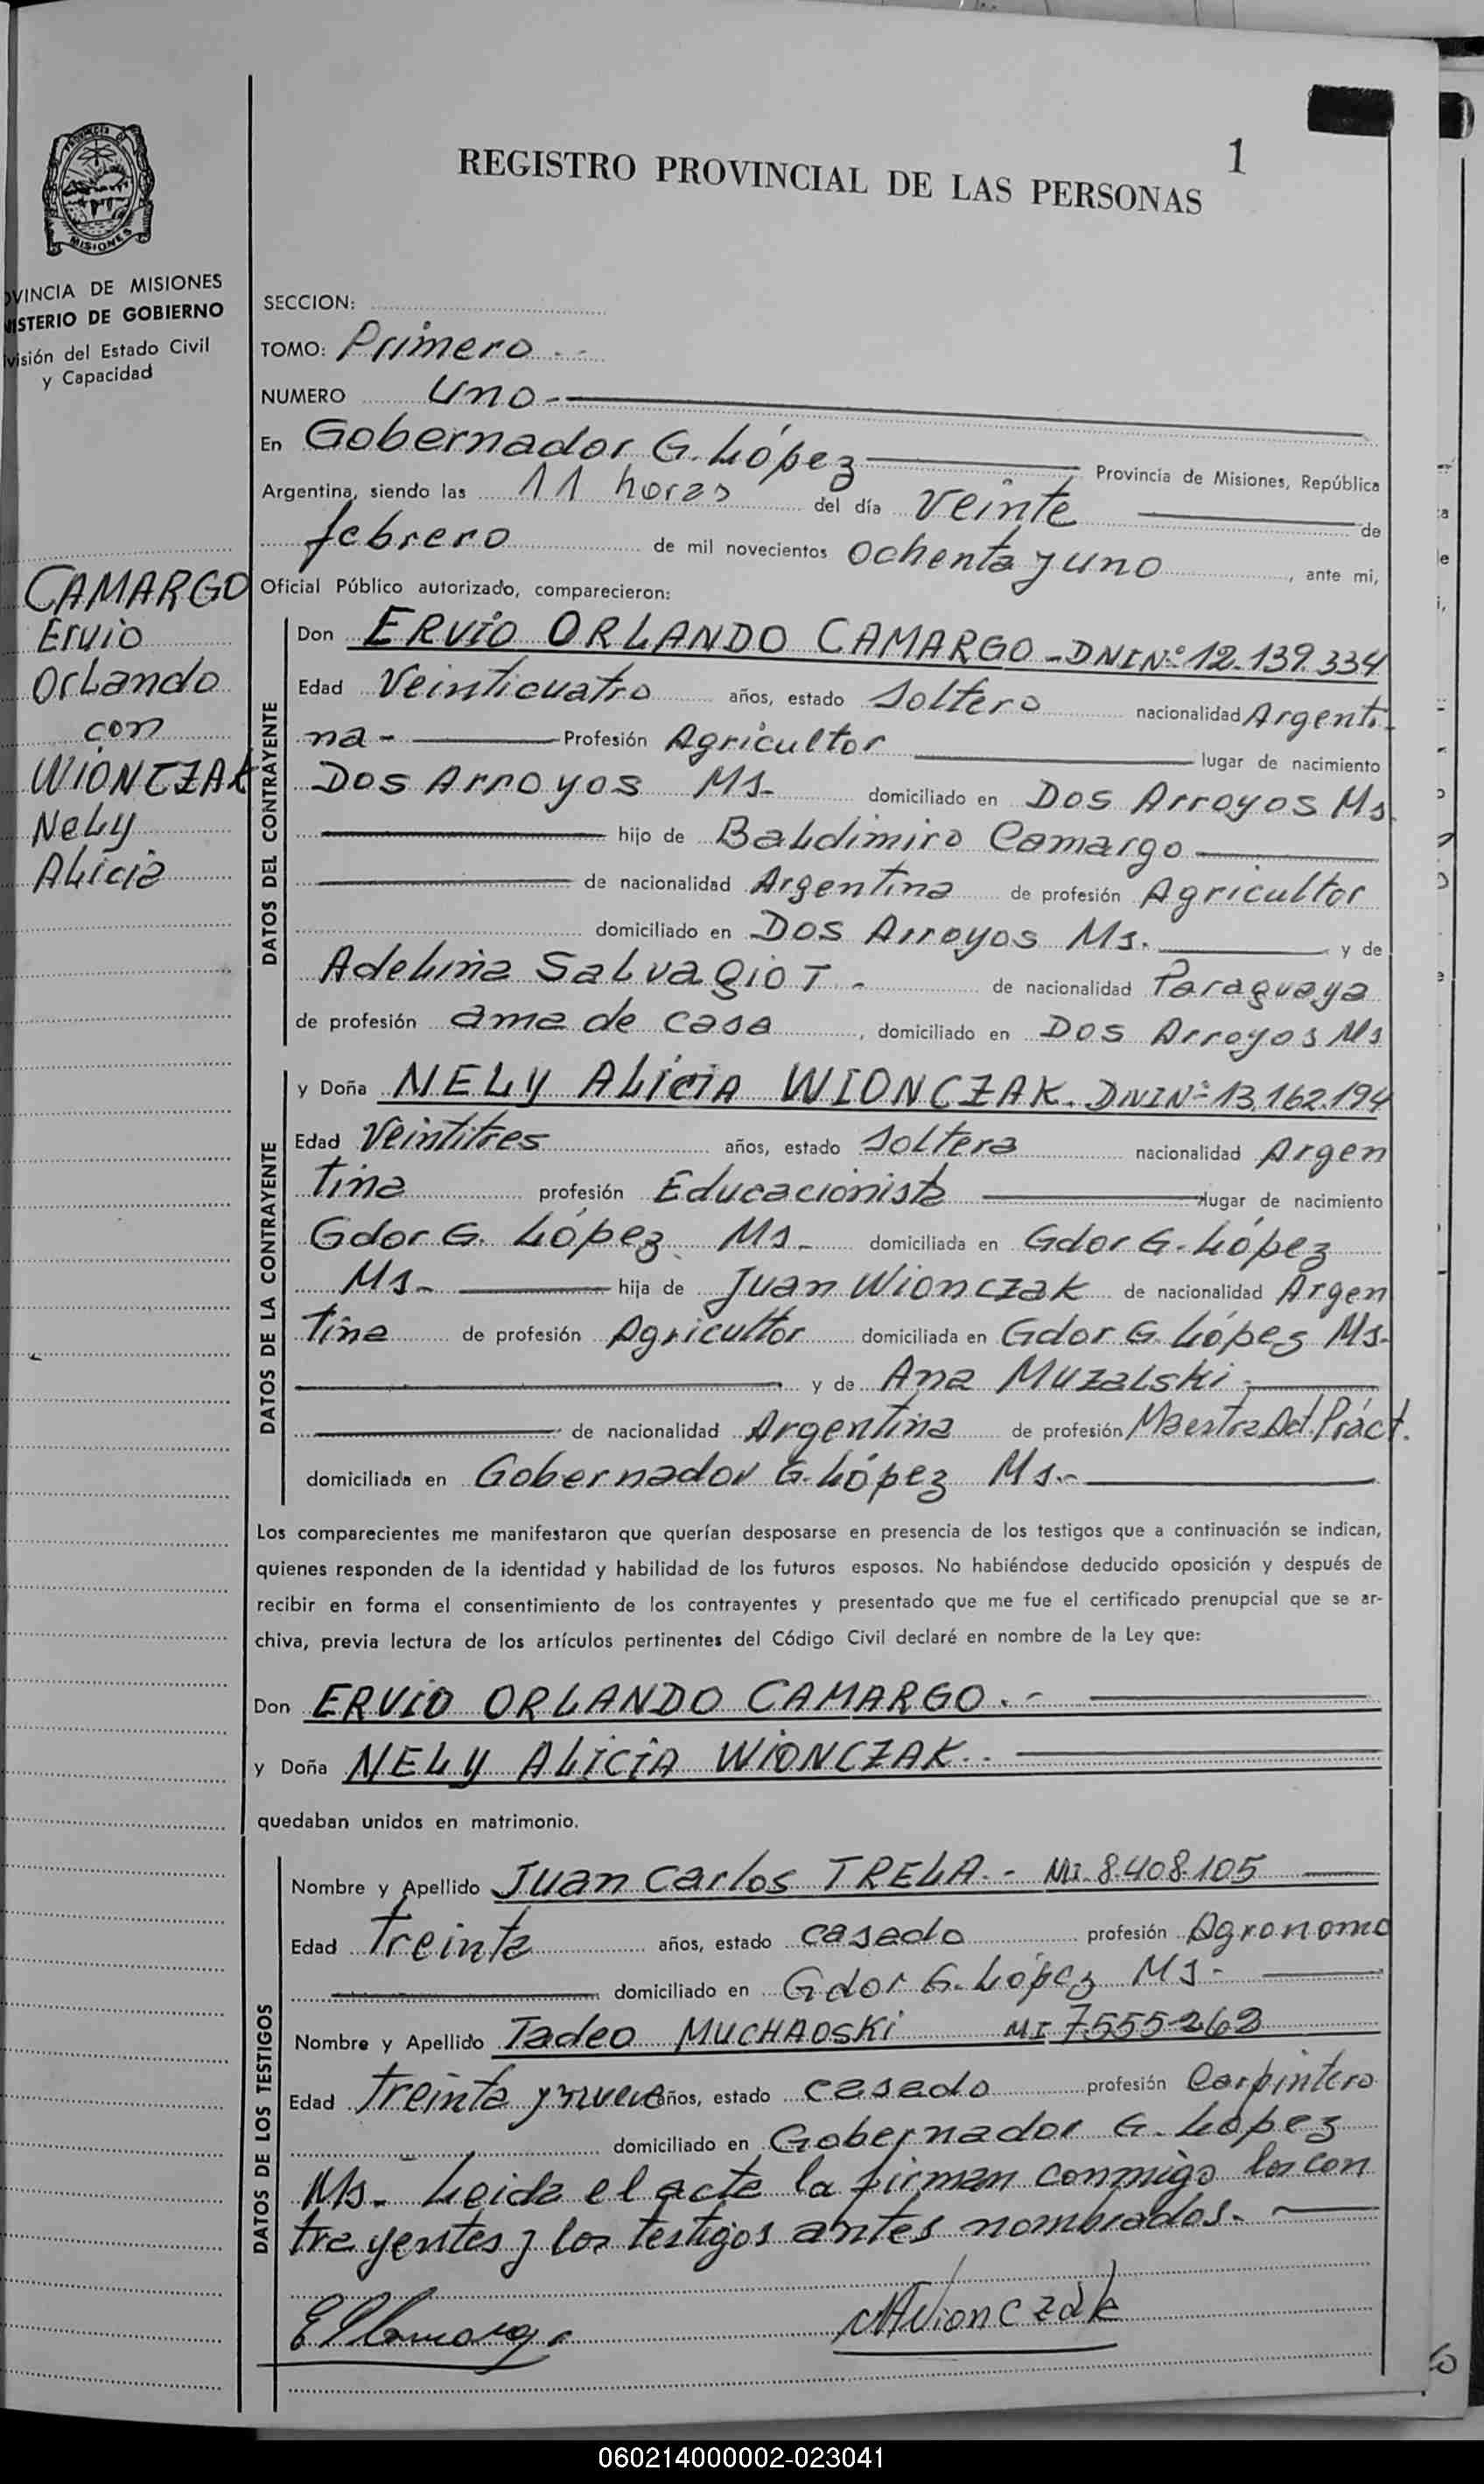 1
REGISTRO PROVINCIAL DE LAS PERSONAS
MISIONES
OVINCIA DE MISIONES
NISTERIO DE GOBIERNO
ivisión del Estado Civil
y Capacidad
CAMARGO
Ervio
Orlando
con
WIONCZAK
Nely
Alicia
SECCION:
TOMO: Primero
NUMERO uno-
En Gobernador G. López Provincia de Misiones, República
Argentina, siendo las 11 horas del día veinte de
febrero de mil novecientos ochenta y uno, ante mi,
Oficial Público autorizado, comparecieron:
DATOS DEL CONTRAYENTE
Don ERVIO ORLANDO CAMARGO - DNI Nº 12.139.334
Edad Veinticuatro años, estado soltero nacionalidad Argenti-
na- Profesión Agricultor lugar de nacimiento
Dos Arroyos Ms- domiciliado en Dos Arroyos Ms.
hijo de Baldimiro Camargo
de nacionalidad Argentina de profesión Agricultor
domiciliado en Dos Arroyos Ms. y de
Adelina Salvagiot - de nacionalidad Paraguaya
de profesión ama de casa, domiciliado en Dos Arroyos Ms
DATOS DE LA CONTRAYENTE
y Doña NELY ALICIA WIONCZAK. DNI Nº 13.162.194
Edad Veintitres años, estado soltera nacionalidad Argen
tina profesión Educacionista lugar de nacimiento
Gdor G. López Ms- domiciliada en Gdor G. López
Ms- hija de Juan Wionczak de nacionalidad Argen
tina de profesión Agricultor domiciliada en Gdor G. López Ms-
y de Ana Muzalski-
de nacionalidad Argentina de profesión Maestra Act. Práct.
domiciliada en Gobernador G. López Ms.-
Los comparecientes me manifestaron que querían desposarse en presencia de los testigos que a continuación se indican,
quienes responden de la identidad y habilidad de los futuros esposos. No habiéndose deducido oposición y después de
recibir en forma el consentimiento de los contrayentes y presentado que me fue el certificado prenupcial que se ar-
chiva, previa lectura de los artículos pertinentes del Código Civil declaré en nombre de la Ley que:
Don ERVIO ORLANDO CAMARGO.-
y Doña NELY ALICIA WIONCZAK.-
quedaban unidos en matrimonio.
DATOS DE LOS TESTIGOS
Nombre y Apellido Juan Carlos TRELA.- MI. 8.408.105
Edad treinta años, estado casado profesión Agronomo
domiciliado en Gdor G. López Ms-
Nombre y Apellido Tadeo MUCHAOSKI MI 7555262
Edad treinta y nueve años, estado casado profesión Carpintero
domiciliado en Gobernador G. López
Ms- Leida el acta la firman conmigo los con
trayentes y los testigos antes nombrados.-
NAWionczak
060214000002-023041